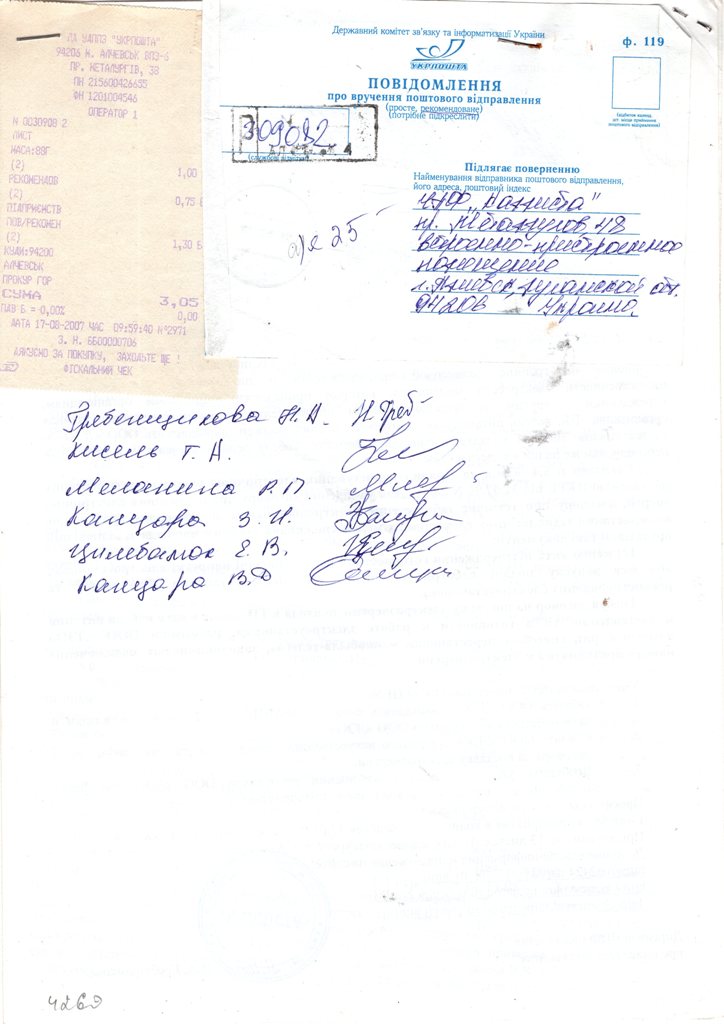 ДА УДППЗ "УКРПОШТА"
94206 М. АЛЧЕВСЬК ВПЗ-6
ПР. МЕТАЛУРГІВ, 38
ПН 215600426655
ФН 1201004546
ОПЕРАТОР 1
N 0030908 2
ЛИСТ
МАСА:88Г
(2) 1,00
РЕКОМЕНДОВ
(2) 0,75 Б
ПІДПРИЄМСТВ
ПОВ/РЕКОМЕН
(2) 1,30 Б
КУДИ:94200
АЛЧЕВСЬК
ПРОКУР ГОР
СУМА 3,05
ПДВ Б = 0,00% 0,00
ДАТА 17-08-2007 ЧАС 09:59:40 №2971
З. Н. ББ00000706
ДЯКУЄМО ЗА ПОКУПКУ, ЗАХОДЬТЕ ЩЕ !
ФІСКАЛЬНИЙ ЧЕК
Державний комітет зв'язку та інформатизації України
ф. 119
УКРПОШТА
ПОВІДОМЛЕННЯ
про вручення поштового відправлення
(просте, рекомендоване)
(потрібне підкреслити)
(відбиток календ.
шт. місця прийняття
поштового відправлення)
309082
(службові відмітки)
Підлягає поверненню
Найменування відправника поштового відправлення,
його адреса, поштовий індекс
пр. Металлургов 48
встроенно-пристроенное
помещение
г. Алчевск, Луганской обл.
94206 Украина
а/я 25
Гребенщикова Н.А. Н.Греб
Кисель Т. А.
Меланина Р.П.
Канцара З. И.
Цилебамок Е. В.
Канцара В.Д
4269